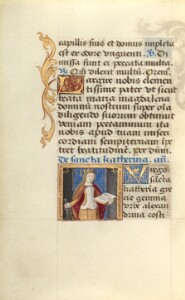 capillis suis et domus impleta
est ex odore vngenti
sunt ei peccata multa.
Qm̄ dilexit multū. Orem9.
Largire nobis clemen
tissime pater vt sicut
beata maria magdalena
dominū nostrum super oīa
diligendo suorum obtinuit
veniam peccaminum ita
nobis apud tuam miseri
cordiam sempiternam im
petret beatitudinē. Per dn̄m
de sancta katherina. añ.
Virgo
sancta
katherīa gre
cie gemma
vrbe alexan
drina costi